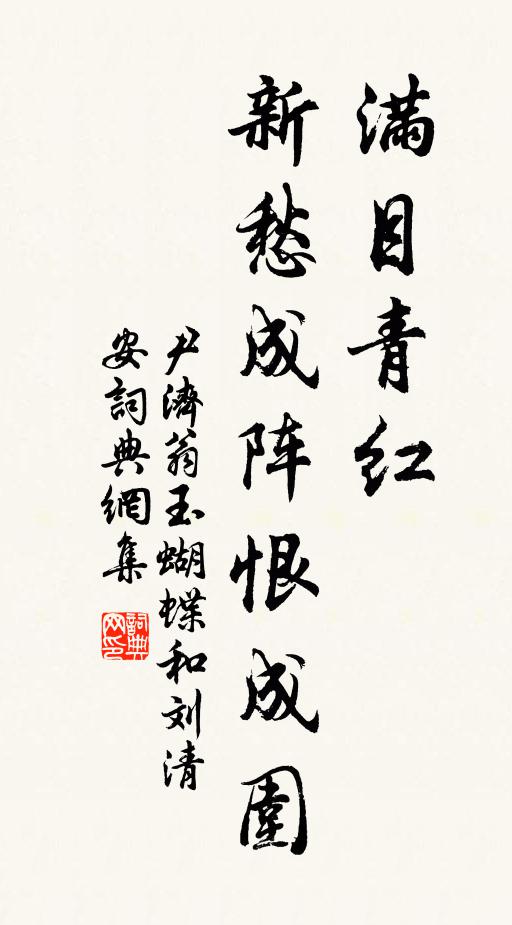 满目青红
新愁成阵恨成围
尹濟翁玉蝴蝶和刘清
安詞典網集
詞典网印